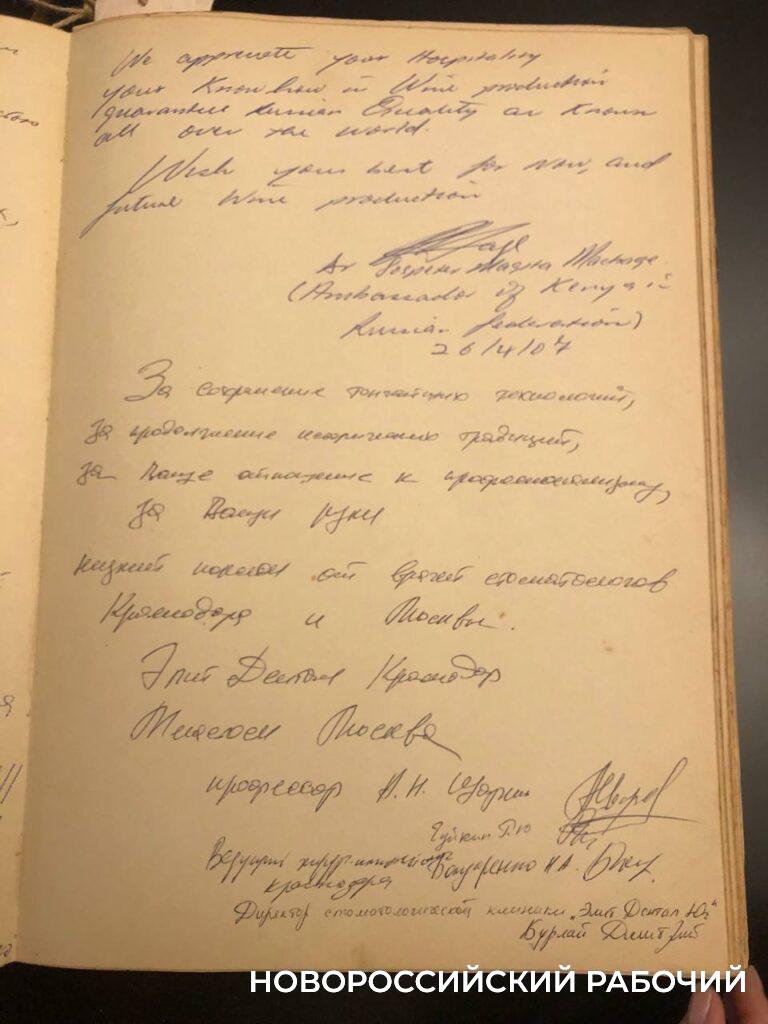 We appreciate your Hospitality
your Know how in Wine production
guarantee Russian Quality as Known
all over the world.
Wish your best for Now, and
future Wine production
Dr Magita Machage
(Ambassador of Kenya in
Russian Federation)
26/4/07
За сохранение тончайших технологий,
За продолжение исторических традиций,
За Ваше отношение к профессионализму,
За Ваши руки
низкий поклон от врачей стоматологов
Краснодара и Москвы.
Элит Дентал Краснодар
Москва
профессор А. Н.
Ведущий хирург
Краснодара Бондаренко Н А.
Директор стоматологической клиники „Элит Дентал Юг"
Бурлай Дмитрий
НОВОРОССИЙСКИЙ РАБОЧИЙ